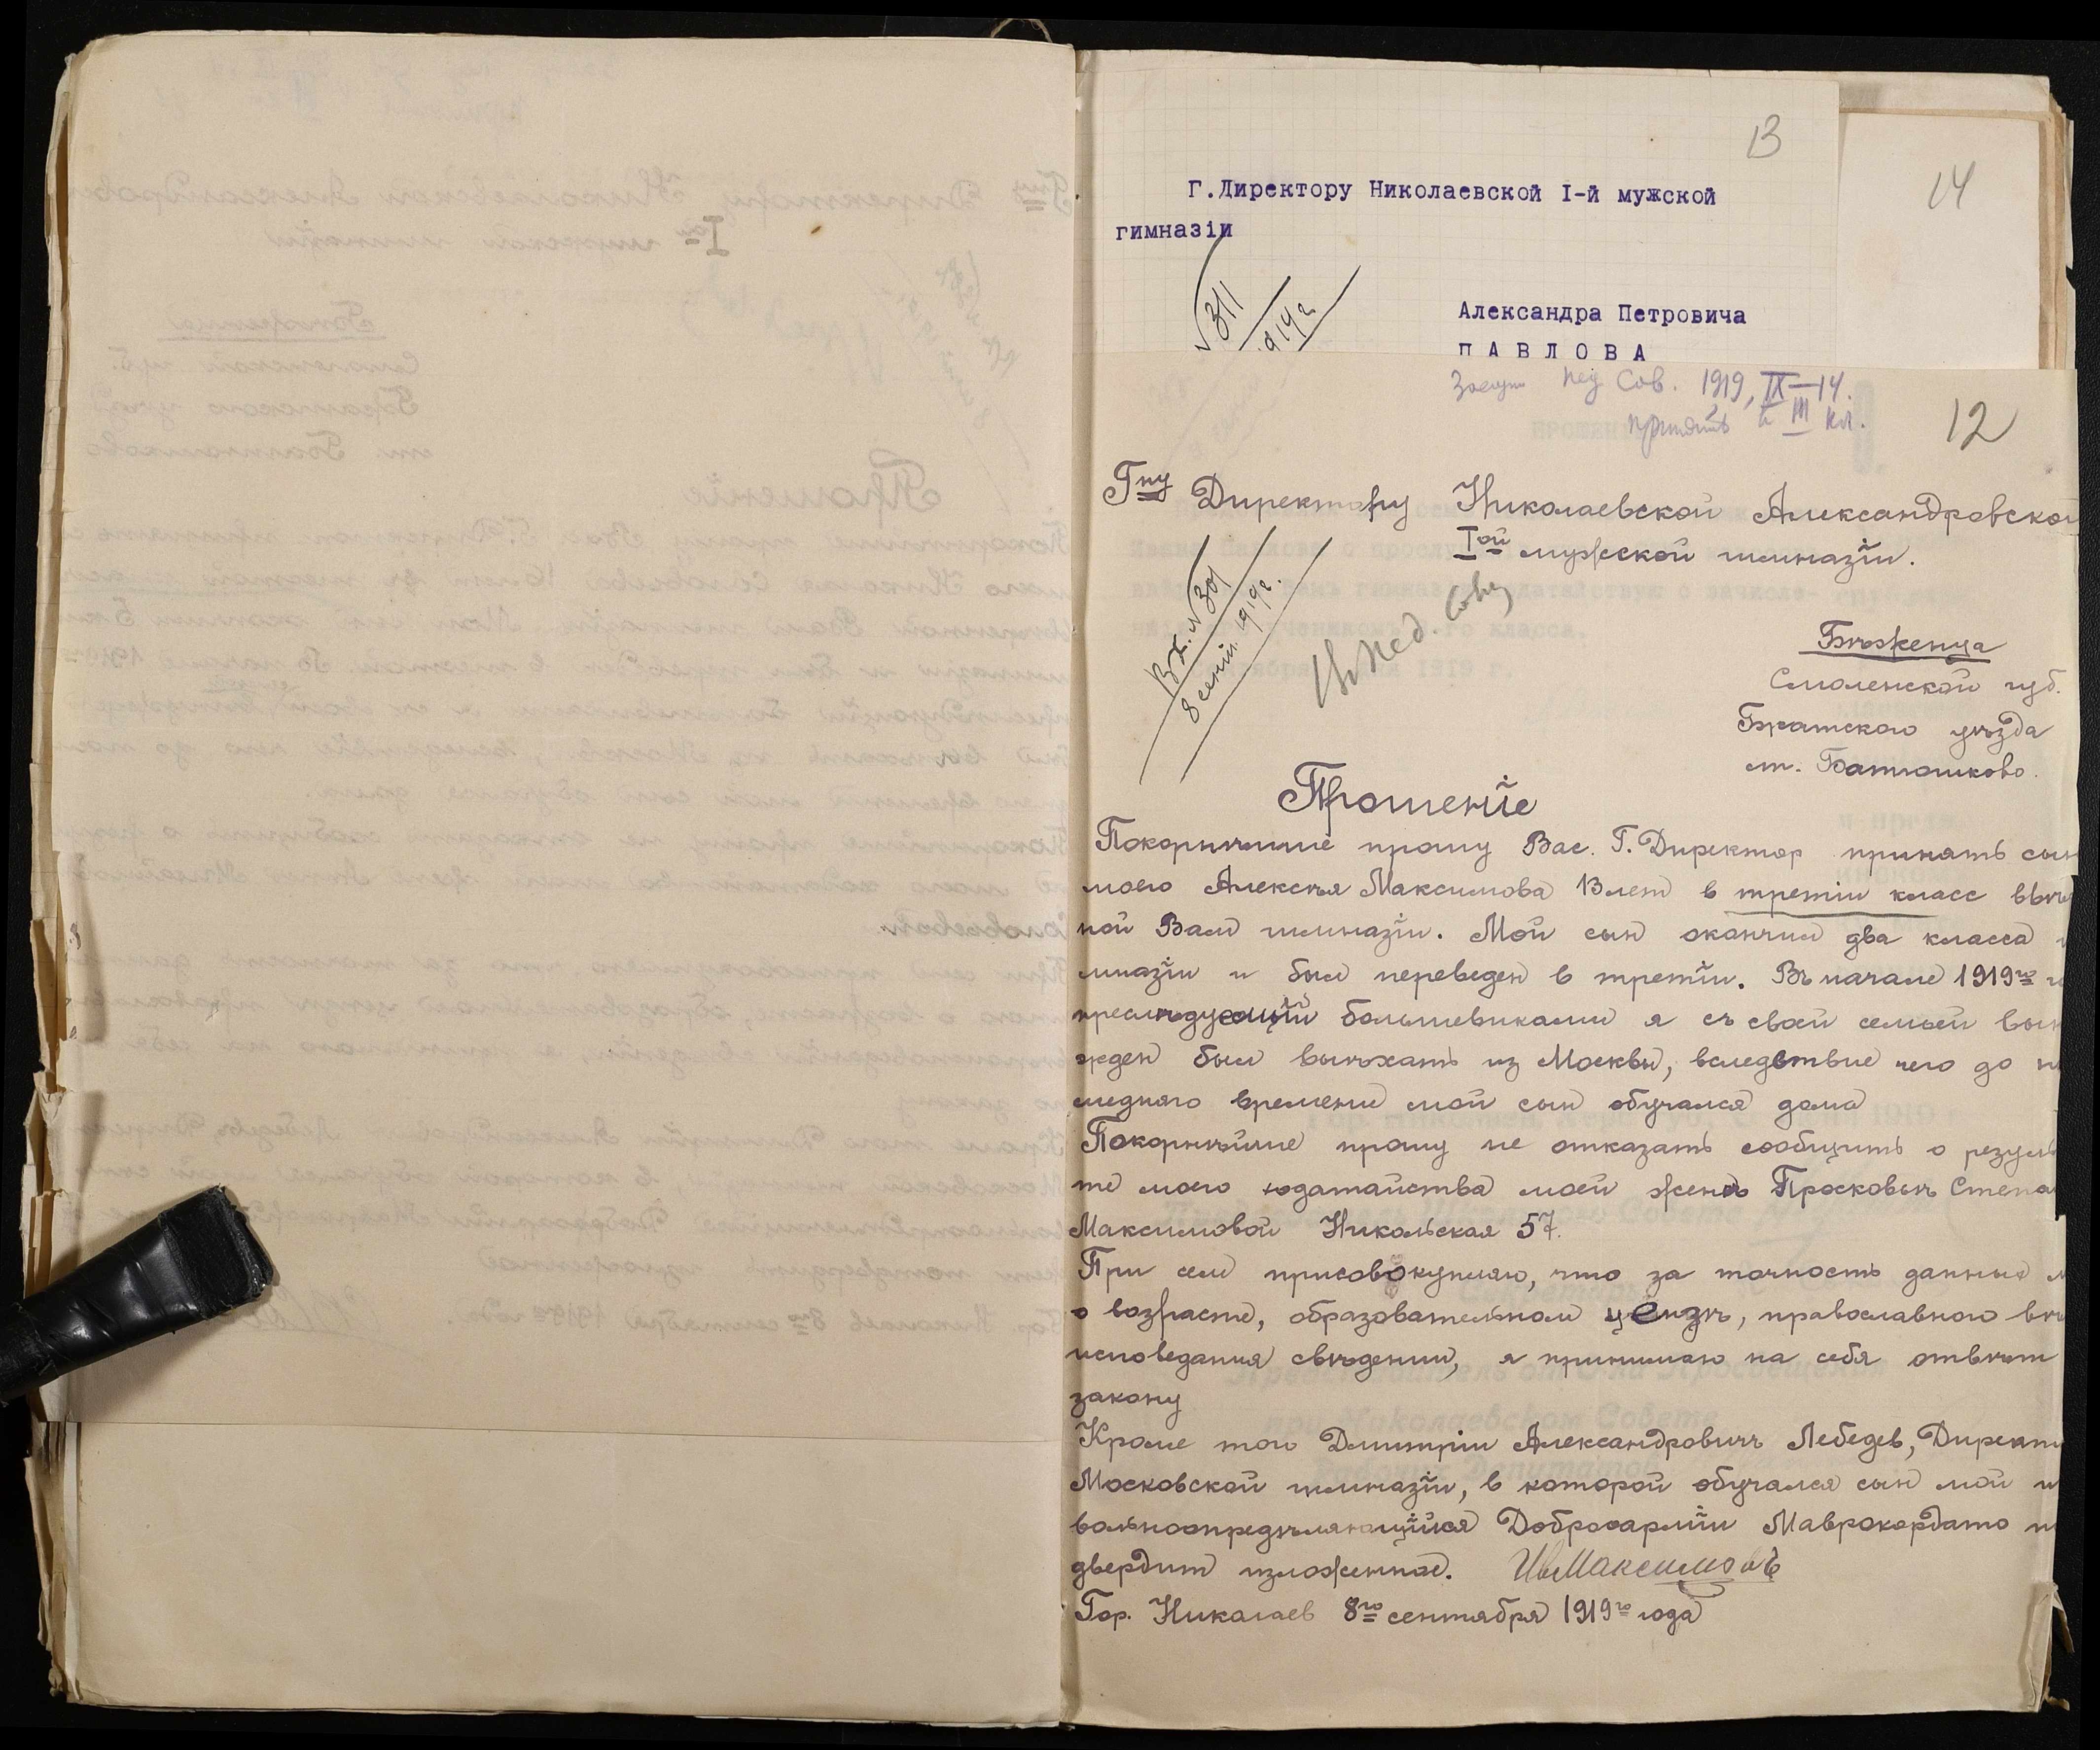 13
14
Г.Директору Николаевской I-й мужской
гимназіи
311
914 г
Александра Петровича
ПАВЛОВА
Пед Сов. 1919, IX—14.
принять в III кл.
12
Гну Директору Николаевской Александровской
Iой мужской гимназіи.
Вх. № 301
8 сент. 1919 г.
Въ Пед. Совѣ
Бѣженца
Смоленской губ.
Гжатского уѣзда
ст. Батюшково.
Прошеніе
Покорнѣйше прошу Вас. Г. Директор принять сын
моего Алексѣя Максимова 13 лет в третій класс ввѣр
ной Вам гимназіи. Мой сын окончил два класса г
мназіи и был переведен в третій. Въ начале 1919го г
преслѣдуемый большевиками я съ своей семьей вын
жден был выѣхать из Москвы, вследствие чего до п
следняго времени мой сын обучался дома
Покорнѣйше прошу не отказать сообщить о резуль
те моего ходатайства моей женѣ Просковьѣ Степа
Максимовой Никольская 57.
При сем присовокупляю, что за точность данных м
о возрасте, образовательном цензѣ, православного вѣ
исповедания сведений, я принимаю на себя отвѣт
закону
Кроме того Дмитрій Александровичъ Лебедев, Директ
Московской гимназіи, в которой обучался сын мой и
вольноопредѣляющійся Доброарміи Маврокордато п
двердит изложенное. Ив Максимовъ
Гор. Николаев 8го сентября 1919го года